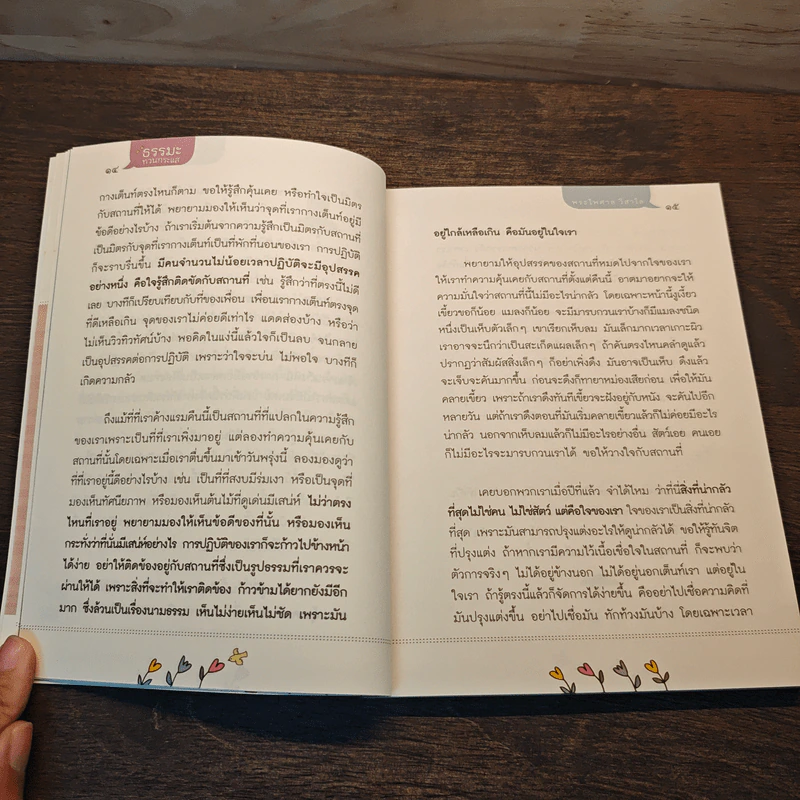 ๑๔
ธรรมะ
ทวนกระแส
กางเต็นท์ตรงไหนก็ตาม ขอให้รู้สึกคุ้นเคย หรือทำใจเป็นมิตร
กับสถานที่ให้ได้ พยายามมองให้เห็นว่าจุดที่เรากางเต็นท์อยู่มี
ข้อดีอย่างไรบ้าง ถ้าเราเริ่มต้นจากความรู้สึกเป็นมิตรกับสถานที่
เป็นมิตรกับจุดที่เรากางเต็นท์เป็นที่พักที่นอนของเรา การปฏิบัติ
ก็จะราบรื่นขึ้น มีคนจำนวนไม่น้อยเวลาปฏิบัติจะมีอุปสรรค
อย่างหนึ่ง คือใจรู้สึกติดขัดกับสถานที่ เช่น รู้สึกว่าที่ตรงนี้ไม่ดี
เลย บางทีก็เปรียบเทียบกับที่ของเพื่อน เพื่อนเรากางเต็นท์ตรงจุด
ที่ดีเหลือเกิน จุดของเราไม่ค่อยดีเท่าไร แดดส่องบ้าง หรือว่า
ไม่เห็นวิวทิวทัศน์บ้าง พอคิดในแง่นี้แล้วใจก็เป็นลบ จนกลาย
เป็นอุปสรรคต่อการปฏิบัติ เพราะว่าใจจะบ่น ไม่พอใจ บางทีก็
เกิดความกลัว
ถึงแม้ที่ที่เราค้างแรมคืนนี้เป็นสถานที่ที่แปลกในความรู้สึก
ของเราเพราะเป็นที่ที่เราเพิ่งมาอยู่ แต่ลองทำความคุ้นเคยกับ
สถานที่นั้นโดยเฉพาะเมื่อเราตื่นขึ้นมาเช้าวันพรุ่งนี้ ลองมองดูว่า
ที่ที่เราอยู่นี้ดีอย่างไรบ้าง เช่น เป็นที่ที่สงบมีร่มเงา หรือเป็นจุดที่
มองเห็นทัศนียภาพ หรือมองเห็นต้นไม้ที่ดูเด่นมีเสน่ห์ ไม่ว่าตรง
ไหนที่เราอยู่ พยายามมองให้เห็นข้อดีของที่นั้น หรือมองเห็น
กระทั่งว่าที่นั่นมีเสน่ห์อย่างไร การปฏิบัติของเราก็จะก้าวไปข้างหน้า
ได้ง่าย อย่าให้ติดข้องอยู่กับสถานที่ซึ่งเป็นรูปธรรมที่เราควรจะ
ผ่านให้ได้ เพราะสิ่งที่จะทำให้เราติดข้อง ก้าวข้ามได้ยากยังมีอีก
มาก ซึ่งล้วนเป็นเรื่องนามธรรม เห็นไม่ง่ายเห็นไม่ชัด เพราะมัน
พระไพศาล วิสาโล
๑๕
อยู่ใกล้เหลือเกิน คือมันอยู่ในใจเรา
พยายามให้อุปสรรคของสถานที่หมดไปจากใจของเรา
ให้เราทำความคุ้นเคยกับสถานที่ตั้งแต่คืนนี้ อาตมาอยากจะให้
ความมั่นใจว่าสถานที่นี้ไม่มีอะไรน่ากลัว โดยเฉพาะหน้านี้งูเงี้ยว
เขี้ยวขอก็น้อย แมลงก็น้อย จะมีมารบกวนเราบ้างก็มีแมลงชนิด
หนึ่งเป็นเห็บตัวเล็กๆ เขาเรียกเห็บลม มันเล็กมากเวลาเกาะผิว
เราอาจจะนึกว่าเป็นสะเก็ดแผลเล็กๆ ถ้าคันตรงไหนคลำดูแล้ว
ปรากฏว่าสัมผัสสิ่งเล็กๆ ก็อย่าเพิ่งดึง มันอาจเป็นเห็บ ดึงแล้ว
จะเจ็บจะคันมากขึ้น ก่อนจะดึงก็ทายาหม่องเสียก่อน เพื่อให้มัน
คลายเขี้ยว เพราะถ้าเราดึงทันทีเขี้ยวจะฝังอยู่กับหนัง จะคันไปอีก
หลายวัน แต่ถ้าเราดึงตอนที่มันเริ่มคลายเขี้ยวแล้วก็ไม่ค่อยมีอะไร
น่ากลัว นอกจากเห็บลมแล้วก็ไม่มีอะไรอย่างอื่น สัตว์เอย คนเอย
ก็ไม่มีอะไรจะมารบกวนเราได้ ขอให้วางใจกับสถานที่
เคยบอกพวกเราเมื่อปีที่แล้ว จำได้ไหม ว่าที่นี่สิ่งที่น่ากลัว
ที่สุดไม่ใช่คน ไม่ใช่สัตว์ แต่คือใจของเรา ใจของเราเป็นสิ่งที่น่ากลัว
ที่สุด เพราะมันสามารถปรุงแต่งอะไรให้ดูน่ากลัวได้ ขอให้รู้ทันจิต
ที่ปรุงแต่ง ถ้าหากเรามีความไว้เนื้อเชื่อใจในสถานที่ ก็จะพบว่า
ตัวการจริงๆ ไม่ได้อยู่ข้างนอก ไม่ได้อยู่นอกเต็นท์เรา แต่อยู่ใน
ใจเรา ถ้ารู้ตรงนี้แล้วก็จัดการได้ง่ายขึ้น คืออย่าไปเชื่อความคิดที่
มันปรุงแต่งขึ้น อย่าไปเชื่อมัน ทักท้วงมันบ้าง โดยเฉพาะเวลา